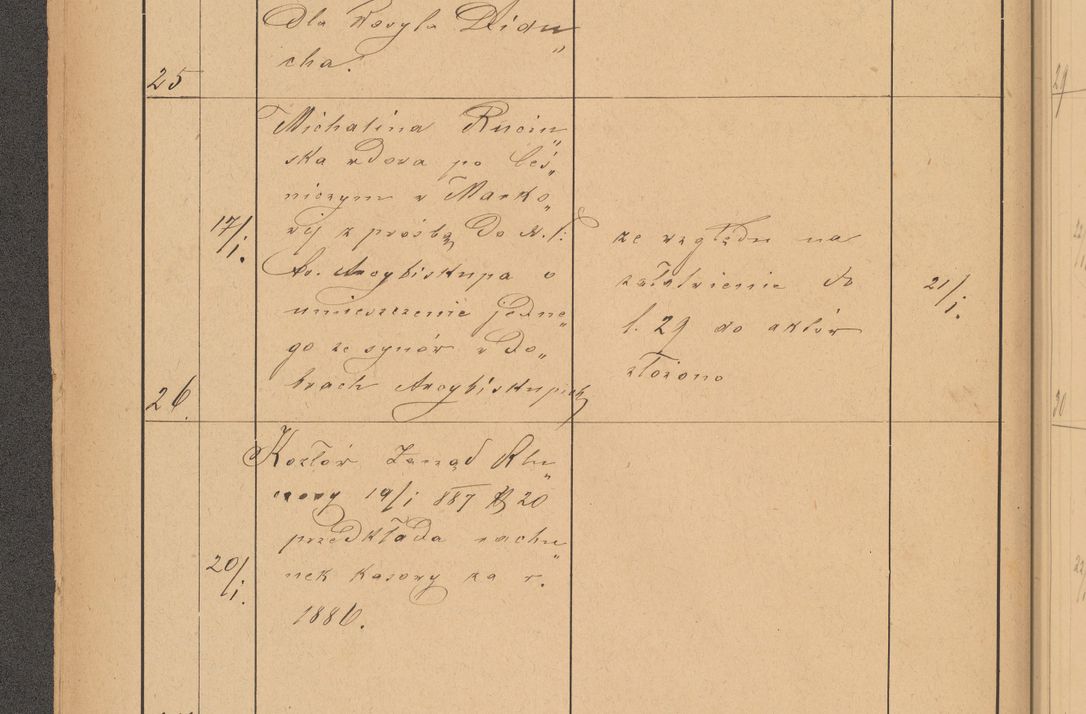 dla Wasyla Didu„
cha.
25
Michalina Ruciń„
ska wdowa po leś„
niczym w Marko„
17/I.
wij z prośbą do N. i.
Ks. Arcybiskupa o
umieszczenie jedne„
go ze synów w do„
brach Arcybiskupich
ze względu na
załatwienie do
l. 29 do aktów
złożono
21/I.
26.
Kozłów Zarząd Klu„
czowy 19/I 887 № 20
przedkłada rachu„
20/I.
nek kasowy za r.
1886.
29
30